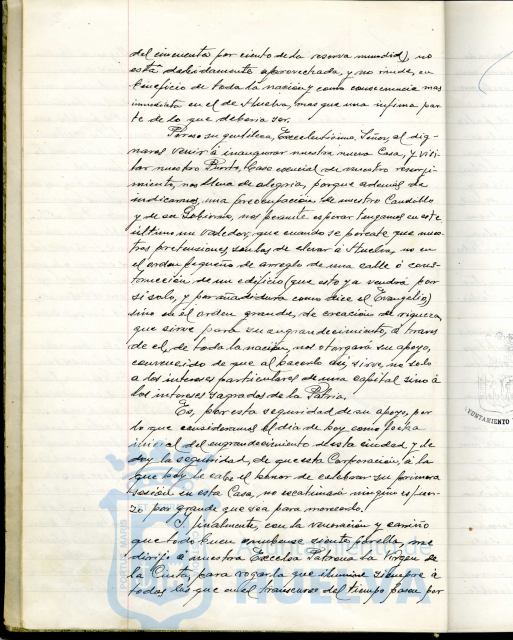 del cincuenta por ciento de la reserva mundial), no
está debidamente aprovechada, y no rinde, en
beneficio de toda la nación y como consecuencia mas
inmediata en el de Huelva, mas que una infima par
te de lo que deberia ser.
Por eso su gentileza, Excelentisimo Señor, al dig
naros venir á inaugurar nuestra nueva Casa, y visi
tar nuestro Puerto, base esencial de nuestro resurgi
miento, nos llena de alegria, porque además de
indicarnos, una preocupación de nuestro Caudillo
y de su Gobierno, nos permite esperar tengamos en este
último un valedor, que cuando se percate que nues
tras pretensiones, son las de elevar á Huelva, no en
el orden pequeño de arreglo de una calle ó cons-
trucción de un edificio (que esto ya vendrá por
si solo, y por añadidura como dice el Evangelio)
sino en el orden grande, de creación de riqueza
que sirve para su engrandecimiento, á través
de el, de toda la nación, nos otorgará su apoyo,
convencido de que al hacerlo asi, sirve, no solo
a los intereses particulares de una capital sino á
los intereses sagrados de la Patria.
Es, por esta seguridad de su apoyo, por
lo que consideramos el dia de hoy como fecha
inicial del engrandecimiento de esta ciudad y de
doy la seguridad, de que esta Corporación, á la
que hoy le cabe el honor de celebrar su primera
sesión en esta Casa, no escatimará ningún esfuer-
zo por grande que sea para merecerlo.
Y, finalmente, con la veneración y cariño
que todo buen onubense siente por ella, me
dirijo á nuestra Excelsa Patrona la Virgen de
la Cinta, para rogarla que ilumine siempre á
todos los que en el transcurso del tiempo pasen por
AYUNTAMIENTO
Ayuntamiento de
HUELVA